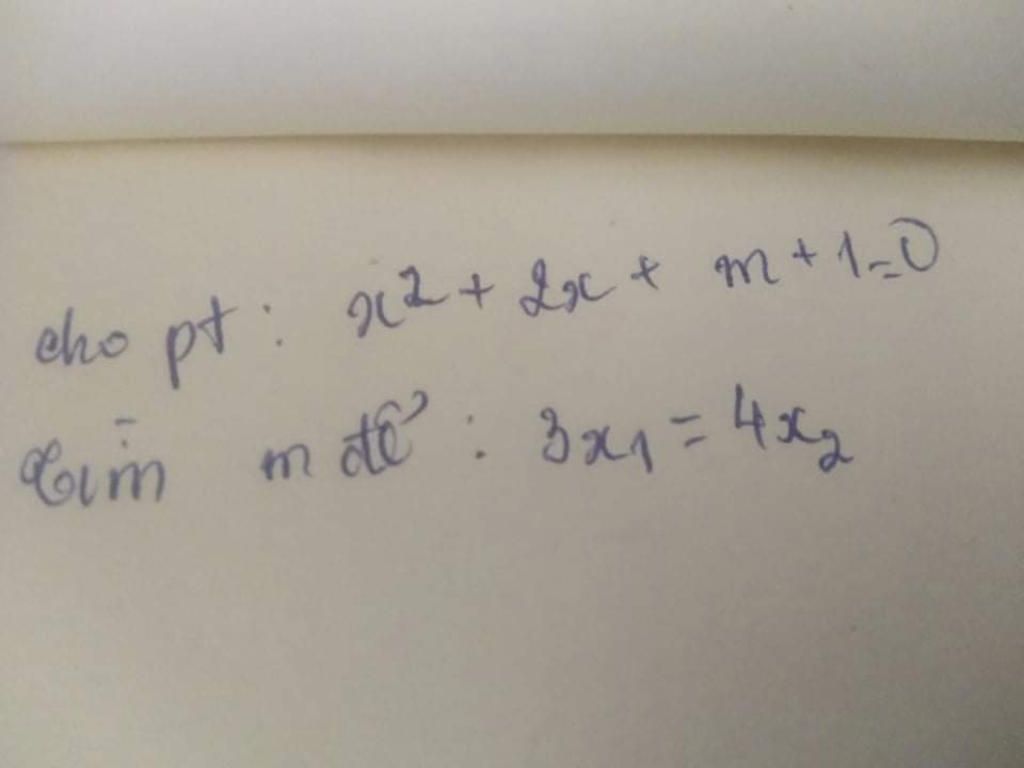 cho pt: x² + 2x + m + 1 = 0
Tìm m để : 3x₁ = 4x₂